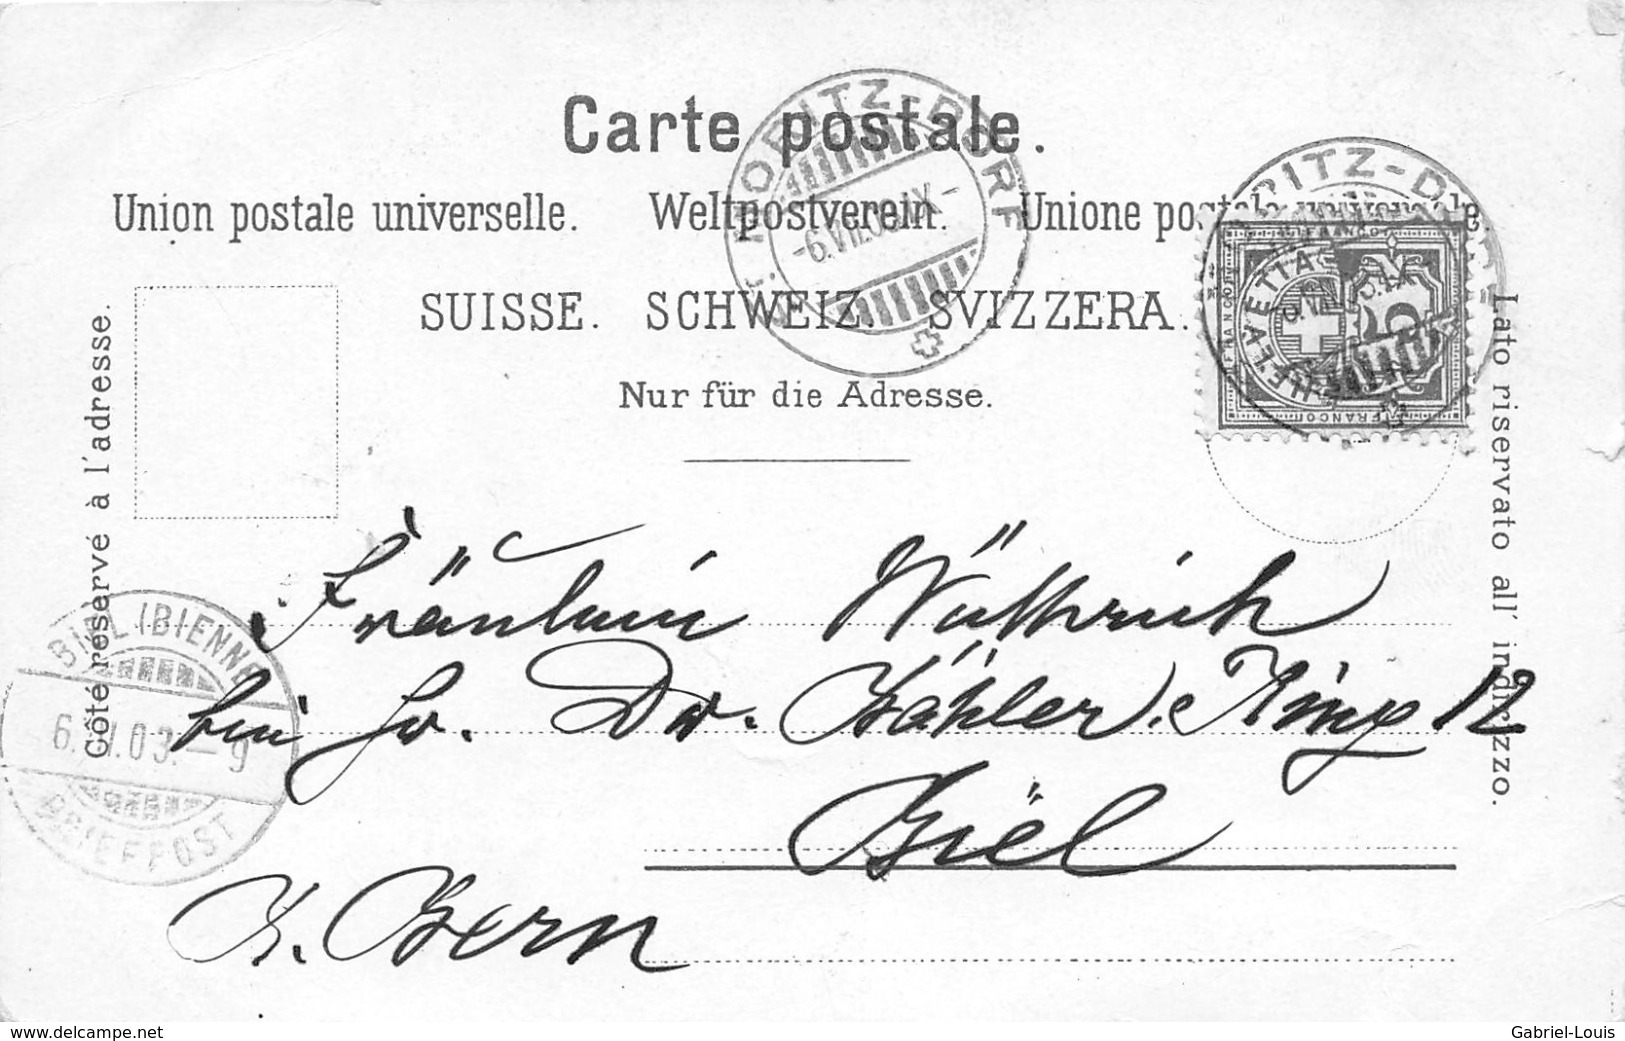 Carte postale.
Union postale universelle. Weltpostverein. Unione postale universale.
SUISSE. SCHWEIZ. SVIZZERA.
Nur für die Adresse.
Côté réservé à l'adresse.
Lato riservato all' indirizzo.
ST. MORITZ-DORF
-6.VII.03.IX-
MORITZ-DORF
HELVETIA
FRANCO
5
BIEL (BIENNE)
6.VII.03.-9
BRIEFPOST
Fräulein Wüthrich
bei Hr. Dr. Bähler. Ring 12
Biel
K. Bern
www.delcampe.net
Gabriel-Louis